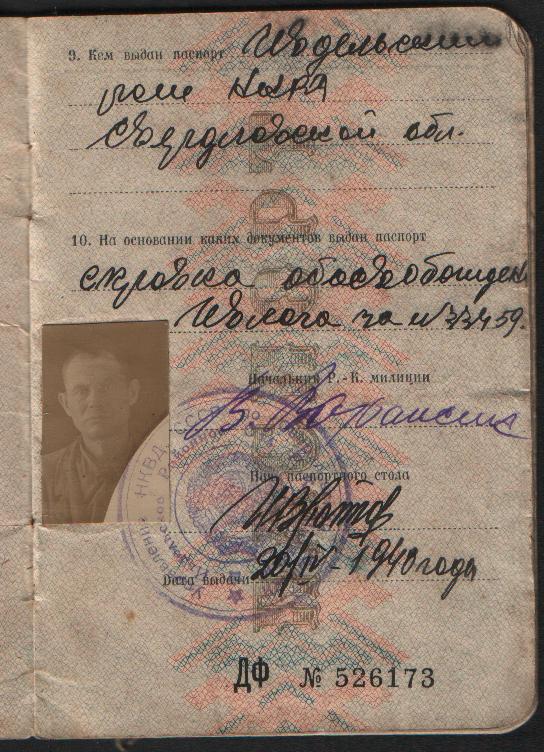 9. Кем выдан паспорт Ивдельским
ром НКВД
Свердловской обл.
10. На основании каких документов выдан паспорт
справка об освобожден
Ивлага за № 33459.
Начальник Р.-К. милиции
Нач. паспортного стола
Дата выдачи 20/IV-1940 года
ДФ № 526173